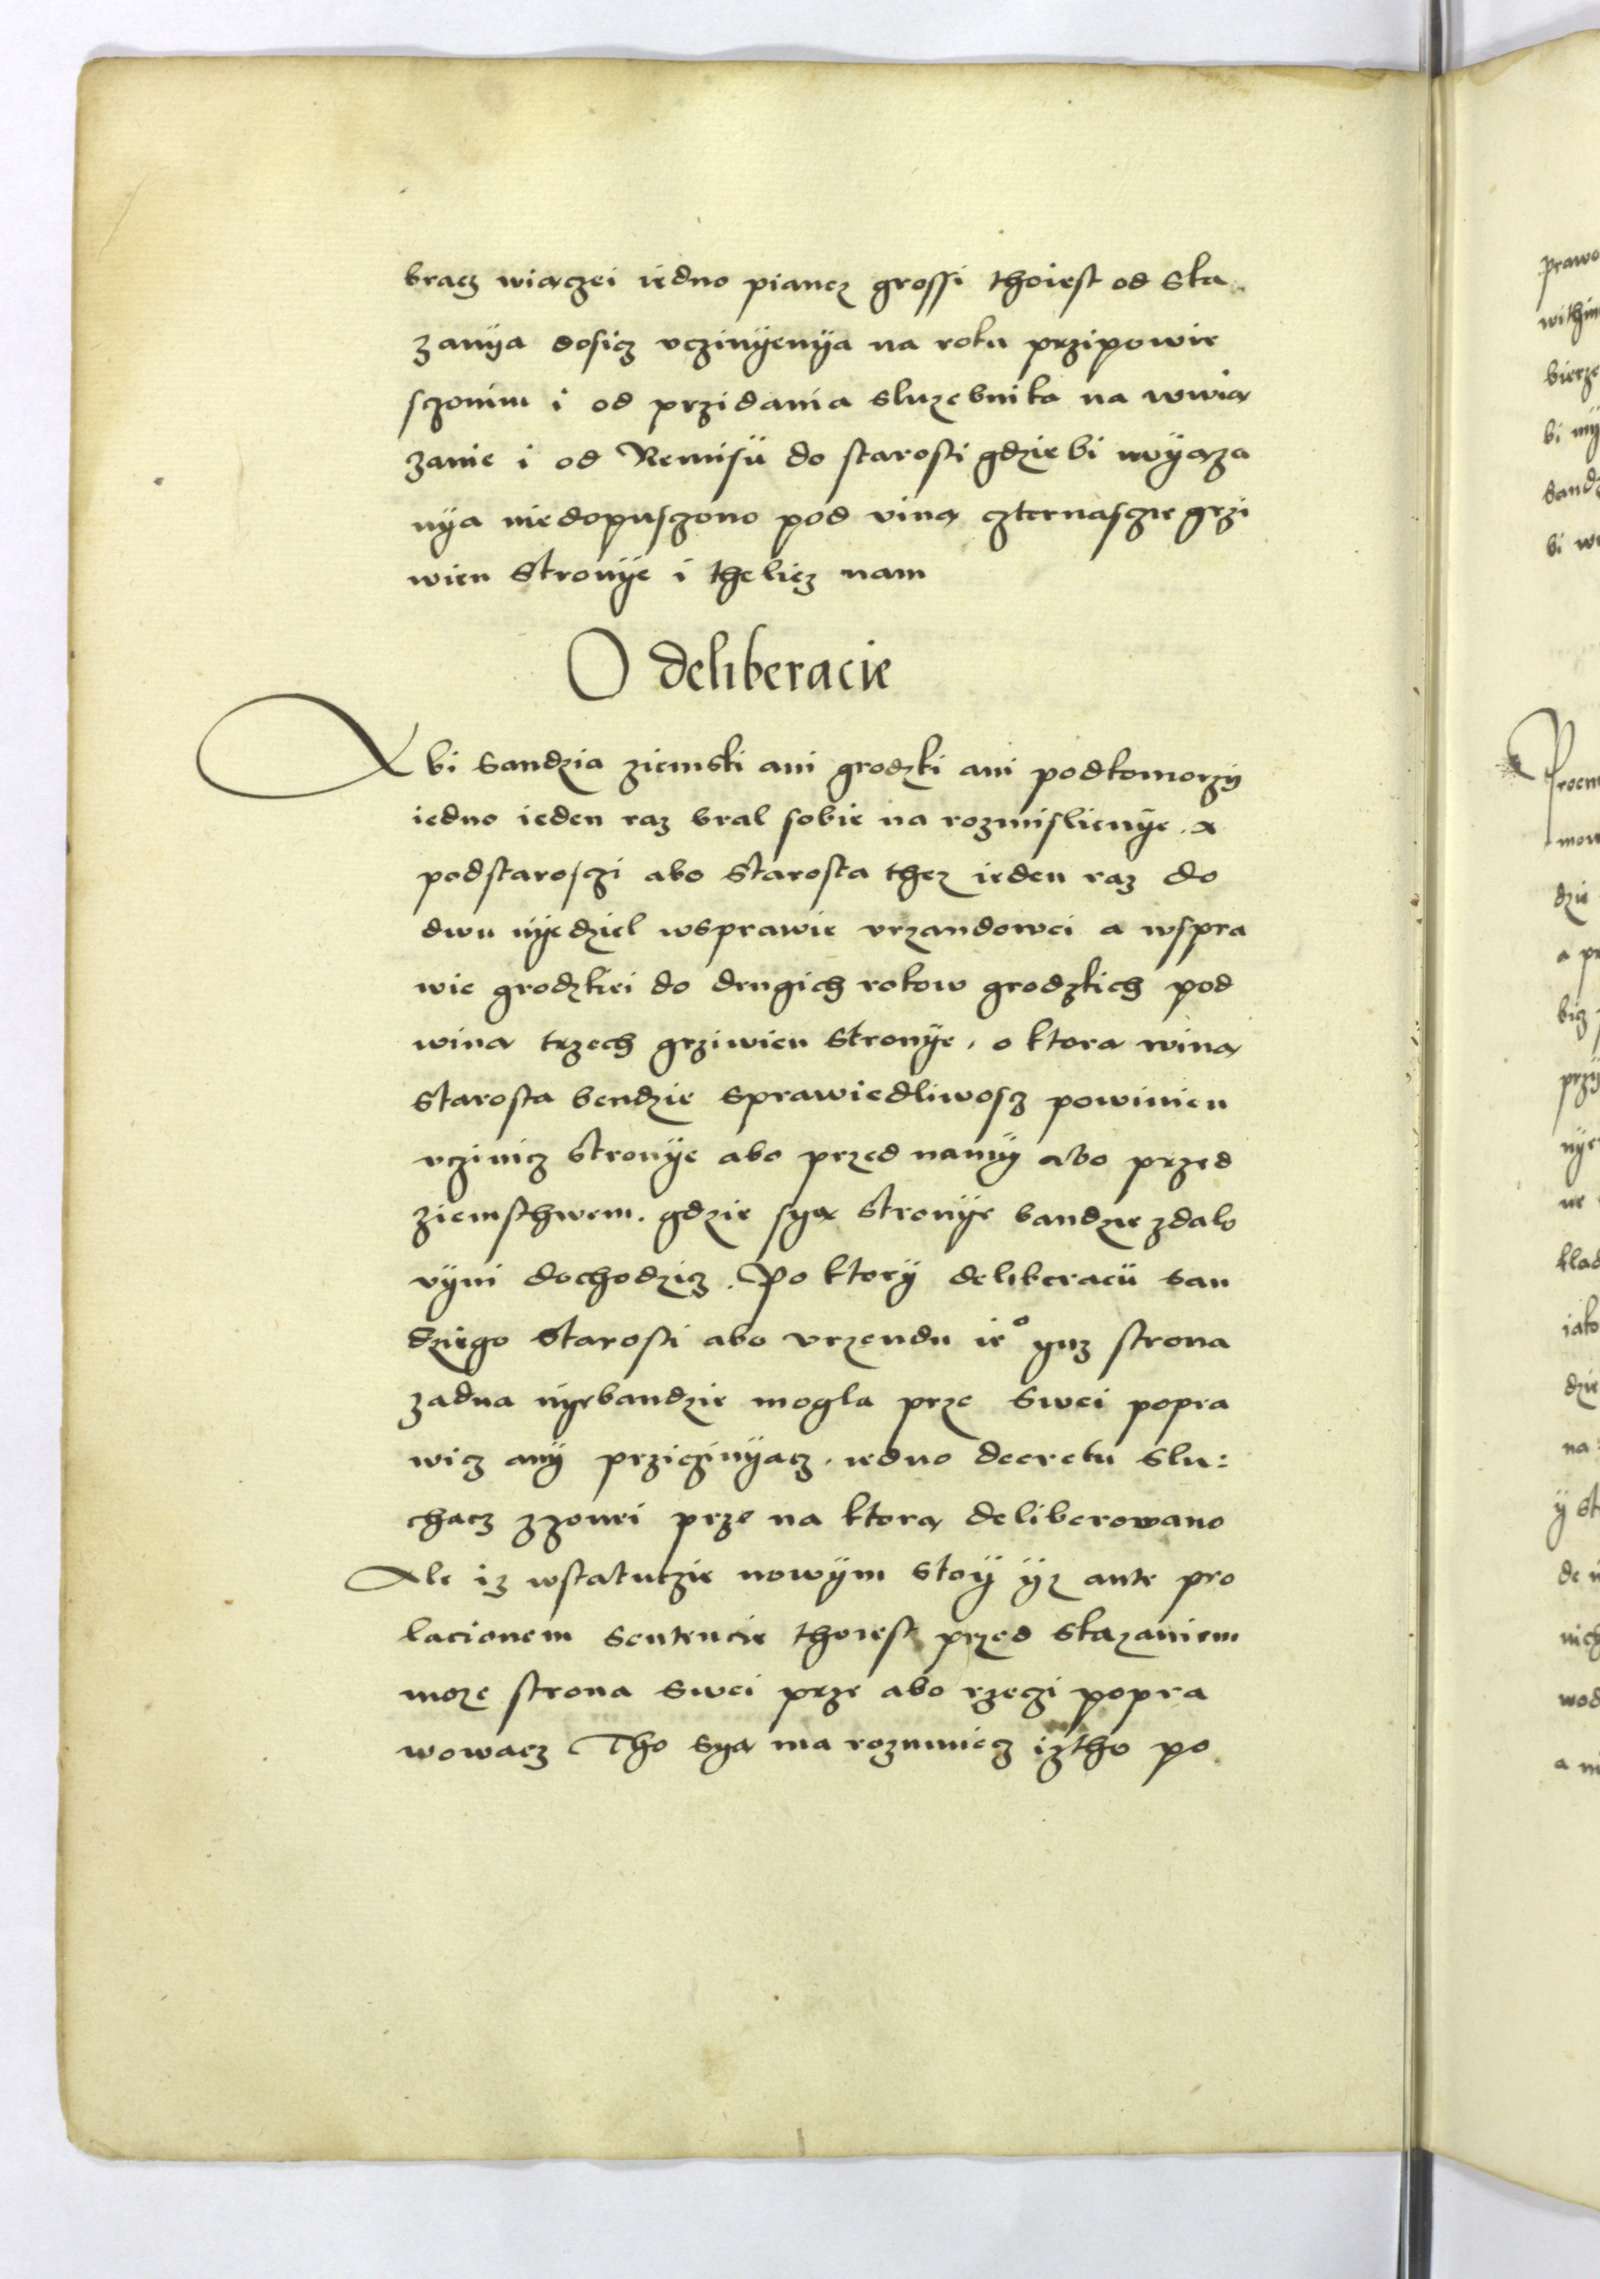 bracz wiączei iedno piancz grossi thoiest od ska
zanÿa dosicz vczinÿenÿa na roku przipowie
sczonim i od przidania sluzebnika na wwią
zanie i od Remisü do starosti gdzie bi wvÿąza
nÿa niedopusczono pod viną czternasczie grzi
wien Stronÿe i thelicz nam
O deliberacie
Abi Sandzia ziemski ani grodzki ani podkomorzÿ
iedno ieden raz bral sobie na rozmislienÿe. A
podstarosczi abo Starosta thez ieden raz do
dwu nÿedziel wsprawie vrzandowei a wspra
wie grodzkiei do drugich rokow grodzkich pod
winą trzech grziwien Stronÿe, o ktorą winą
Starosta bendzie Sprawiedliwoscz powinien
vczinicz Stronÿe abo przed namÿ abo przed
ziemsthwem. gdzie syą Stronÿe bandzie zdalo
vÿni dochodzicz. Po ktorÿ deliberaciÿ San
dziego Starosti abo vrzendu ie° ÿuz strona
zadna nÿebandzie mogla prze Swei popra
wicz anÿ przicinÿacz. iedno decretu Slu:
chacz zzonei prze na ktorą deliberowano
Ale iz wstatuczie nowÿm Stoÿ ÿz ante pro
lacionem Sentencie thoiest przed Skazaniem
moze strona Swei prze abo rzeczi popra
wowacz Tho Syą ma rozumiecz iztho po
prawo
bi
dzie
iako
dzie
na
ÿ
wod